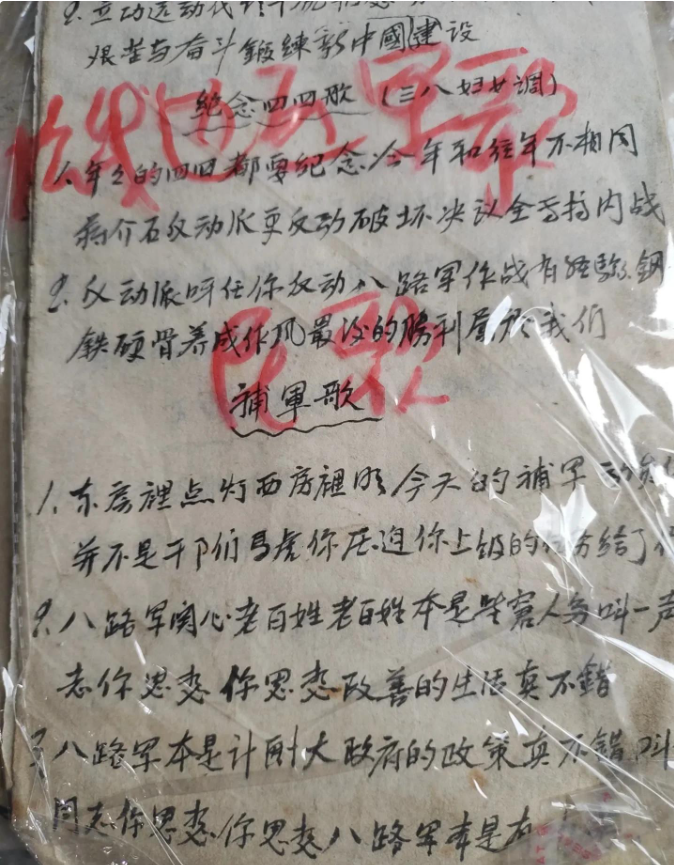 2. 互动运动
艰苦与奋斗鍛練新中國建设
纪念四四歌 (三八妇女调)
军歌
1. 年々的四四都要纪念 今年和往年不相同
蒋介石反动派更反动破坏决议全吾持内战
2. 反动派呀任你反动八路军作战有经验 钢
铁硬骨养成作风最没的勝利属於我们
民歌
補軍歌
1. 东房裡点灯西房裡明 今天的補军
并不是干卩们马虎你压迫你上级的任务给了
2. 八路军関心老百姓老百姓本是 人 叫一声
志你思想你思想改善的生活真不錯
3 八路军本是计 大政府的政策真不错 叫
同志你思想你思想八路军本是